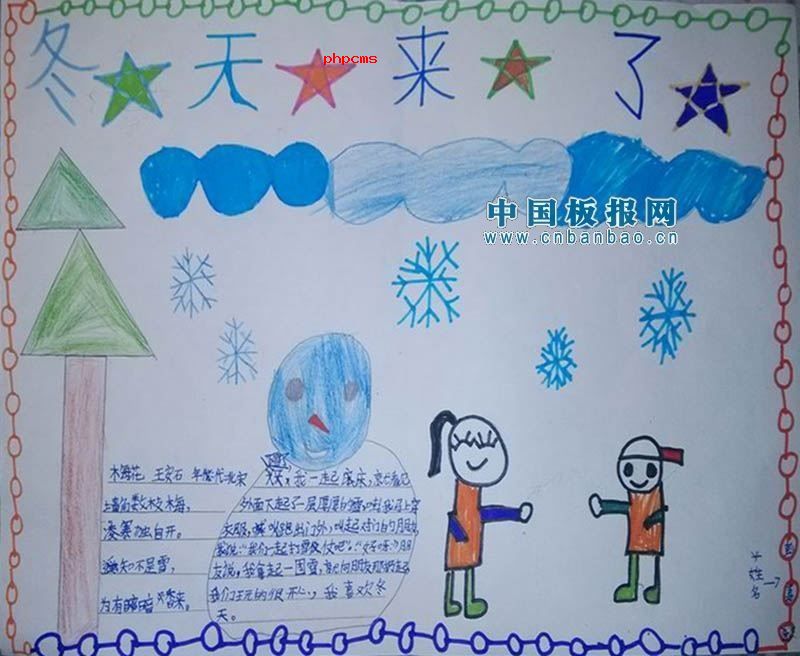 冬天来了
phpcms
中国板报网
www.cnbanbao.cn
梅花 王安石 年代北宋
墙角数枝梅,
凌寒独自开。
遥知不是雪,
为有暗暗香来。
天,我一起床,就看见
外面下起了一层厚厚的
衣服,跑出门外,叫起
说:“我们一起打雪仗吧”“好啊”朋
友说,我拿起一团雪,
我们玩的很开心,我喜欢冬
天。
姓名